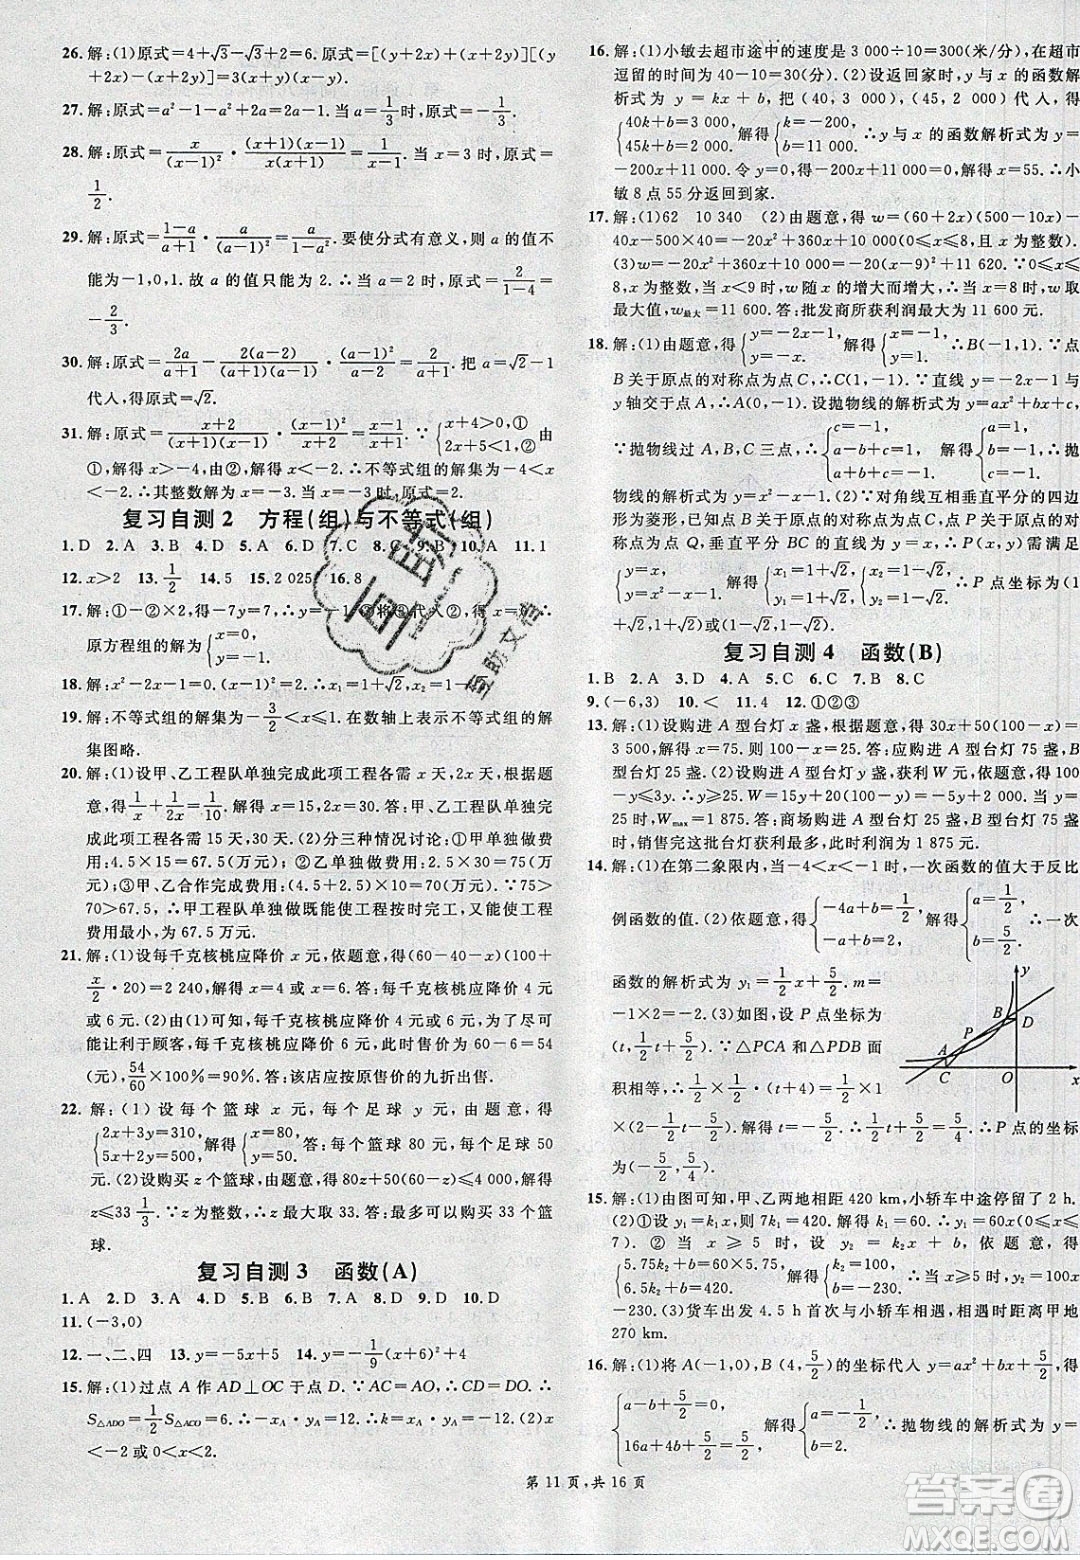 26. 解:(1)原式=4+√3-√3+2=6. 原式=[(y+2x)+(x+2y)][(y
+2x)-(x+2y)]=3(x+y)(x-y).
27. 解:原式=a²-1-a²+2a=2a-1. 当 a=1/3 时,原式=-1/3.
28. 解:原式=x/(x-1)²·(x+1)(x-1)/x(x+1)=1/(x-1). 当 x=3 时,原式=
1/2.
29. 解:原式=(1-a)/(a+1)·a/(a-1)²=a/(1-a²). 要使分式有意义,则 a 的值不能
为-1,0,1. 故 a 的值只能为 2. ∴当 a=2 时,原式=2/(1-4)=
-2/3.
30. 解:原式=2a/(a+1)-2(a-2)/(a+1)(a-1)·(a-1)²/(a-2)=2/(a+1). 把 a=√2-1
代人,得原式=√2.
31. 解:原式=(x+2)/(x+1)(x-1)·(x-1)²/(x+2)=(x-1)/(x+1). ∵{x+4>0,① 2x+5<1,② 由
①,解得 x>-4,由②,解得 x<-2. ∴不等式组的解集为-4<x
<-2. ∴其整数解为-3. 当 x=-3 时,原式=2.
复习自测 2 方程(组)与不等式(组)
1. D 2. A 3. B 4. D 5. A 6. D 7. C 8. C 9. B 10. A 11. 1
12. x>2 13. 1/2 14. 5 15. 2 025 16. 8
17. 解:①-②×2,得-7y=7,∴y=-1. 将③代人②,得 x=0. ∴
原方程组的解为{x=0, y=-1.
18. 解:x²-2x-4=0,x₁=1-√5,x₂=1+√5.
19. 解:不等式组的解集为-3/2<x≤1. 在数轴上表示不等式组的解
集图略.
20. 解:(1)设甲、乙工程队单独完成此项工程各需 x 天,2x 天,根据题
意,得10/x+10/2x=1. 解得 x=15. 2x=30. 答:甲、乙工程队单独完
成此项工程各需 15 天,30 天. (2)分三种情况讨论:①甲单独做费
用:4.5×15=67.5(万元);②乙单独做费用:2.5×30=75(万
元);③甲、乙合作完成费用:(4.5+2.5)×10=70(万元). ∵75>
70>67.5,∴甲工程队单独做既能使工程按时完工,又能使工程
费用最小,为 67.5 万元.
21. 解:(1)设每千克核桃应降价 x 元,依题意,得(60-40-x)(100+
x/2·20)=2 240,解得 x₁=4,x₂=6. 答:每千克核桃应降价 4 元
或 6 元. (2)由(1)可知,每千克核桃应降价 4 元或 6 元. ∵要尽可
能让利于顾客,∴每千克核桃应降价 6 元. 此时售价为 60-6=54
(元),54/60×100%=90%. ∴该店应按原售价的九折出售.
22. 解:(1)设每个篮球 x 元,每个足球 y 元,由题意,得
{2x+3y=310, 5x+2y=500,解得{x=80, y=50. 答:每个篮球 80 元,每个足球 50
元. (2)设购买 z 个篮球,由题意,得 80z+50(60-z)≤4 000,解得
z≤33 1/3. ∵z 为整数,∴z 最大取 33. 答:最多可以购买 33 个篮
球.
复习自测 3 函数(A)
1. A 2. D 3. A 4. D 5. D 6. A 7. D 8. B 9. D 10. D
11. (-3,0)
12. 一、二、四 13. y=-5x+5 14. y=-1/9(x+6)²+4
15. 解:(1)过点 A 作 AD⊥OC 于点 D. ∵AC=AO,∴CD=DO. ∴
S△ADO=1/2S△ACO=6. ∴-x_A·y_A=12. ∴k=x_A·y_A=-12. (2)x
<-2 或 0<x<2.
16. 解:(1)小敏去超市途中的速度是 3 000÷10=300(米/分),在超市
逗留的时间为 40-10=30(分). (2)设返回家时,y 与 x 的函数解
析式为 y=kx+b,把(40,3 000),(45,2 000)代人,得
{40k+b=3 000, 45k+b=2 000,解得{k=-200, b=11 000. ∴y 与 x 的函数解析式为 y=
-200x+11 000. 令 y=0,得-200x+11 000=0,解得 x=55. ∴小
敏 8 点 55 分返回到家.
17. 解:(1)62 10 340 (2)由题意,得 w=(60+2x)(500-10x)-
40x-500×40=-20x²+360x+10 000(0≤x≤8,且 x 为整数).
(3)w=-20x²+360x+10 000=-20(x-9)²+11 620. ∵0≤x≤
8,x为整数,当 x<9 时,w 随 x 的增大而增大,∴当 x=8 时,w有
最大值,w最大=11 600. 答:批发商所获利润最大为 11 600 元.
18. 解:(1)由题意,得{y=-2x-1, y=x,解得{x=-1, y=1. ∴B(-1,1). ∵点
B 关于原点的对称点为点 C,∴C(1,-1). ∵直线 y=-2x-1 与
y 轴交于点 A,∴A(0,-1). 设抛物线的解析式为 y=ax²+bx+c,
∵抛物线过 A,B,C 三点,∴{c=-1, a+b+c=-1, a-b+c=1. 解得{a=1, b=-1, c=-1. ∴抛
物线的解析式为 y=x²-x-1. (2)∵对角线互相垂直平分的四边
形为菱形,已知点 B 关于原点的对称点为点 C,点 P 关于原点的对
称点为点 Q,垂直平分 BC 的直线为 y=x,∴P(x,y)需满足
{y=x, y=x²-x-1. 解得{x₁=1+√2, y₁=1+√2. {x₂=1-√2, y₂=1-√2. ∴P 点坐标为(1
+√2,1+√2)或(1-√2,1-√2).
复习自测 4 函数(B)
1. B 2. A 3. D 4. A 5. C 6. C 7. B 8. C
9. (-6,3) 10. < 11. 4 12. ①②③
13. 解:(1)设购进 A 型台灯 x 盏,根据题意,得 30x+50(100-x)=
3 500,解得 x=75. ∴100-x=25. 答:应购进 A 型台灯 75 盏,B
型台灯 25 盏. (2)设购进 A 型台灯 x 盏,获利 W 元,由题意,得 100
-x≤3x,∴x≥25. W=15x+20(100-x)=-5x+2 000. ∵k=
-5<0,∴当 x=25 时,Wmax=1 875. 答:商场购进 A 型台灯 25 盏
时,销售完这批台灯获利最多,此时利润为 1 875 元.
14. 解:(1)在第二象限内,当-4<x<-1 时,一次函数的值大于反比
例函数的值. (2)依题意,得{-4a+b=1/2, -a+b=2, 解得{a=1/2, b=5/2. ∴一次
函数的解析式为 y₁=1/2x+5/2. m=
-1×2=-2. (3)如图,设 P 点坐标为
(t,1/2t+5/2). ∵△PCA 和△PDB 面
积相等,∴1/2×1/2·(t+4)=1/2×1
×(2-1/2t-5/2). 解得 t=-5/2. ∴1/2t+5/2=5/4. ∴P 点的坐标
为(-5/2,5/4).
A B C D O P x y
15. 解:(1)由图可知,甲、乙两地相距 420 km,小轿车中途停留了 2 h.
(2)①设 y₁=k₁x,得 7k₁=420. 解得 k₁=60. ∴y₁=60x(0≤x≤
7). ②当 x≥5.75 时,设 y₂=k₂x+b,由题意,得
{5.75k₂+b=60×5.75, 6.5k₂+b=420, 解得{k₂=100, b=-230. ∴当 x≥5.75 时,y₂=100x
-230. (3)货车出发 4.5 h 首次与小轿车相遇,相遇时距离甲地
270 km.
16. 解:(1)将 A(-1,0),B(4,5/2)的坐标代人 y=ax²+bx+5/2,得
{a-b+5/2=0, 16a+4b+5/2=5/2, 解得{a=-1/2, b=2. ∴抛物线的解析式为 y=
第 11 页,共 16 页
互助文倍
答案圈
MXQE.COM